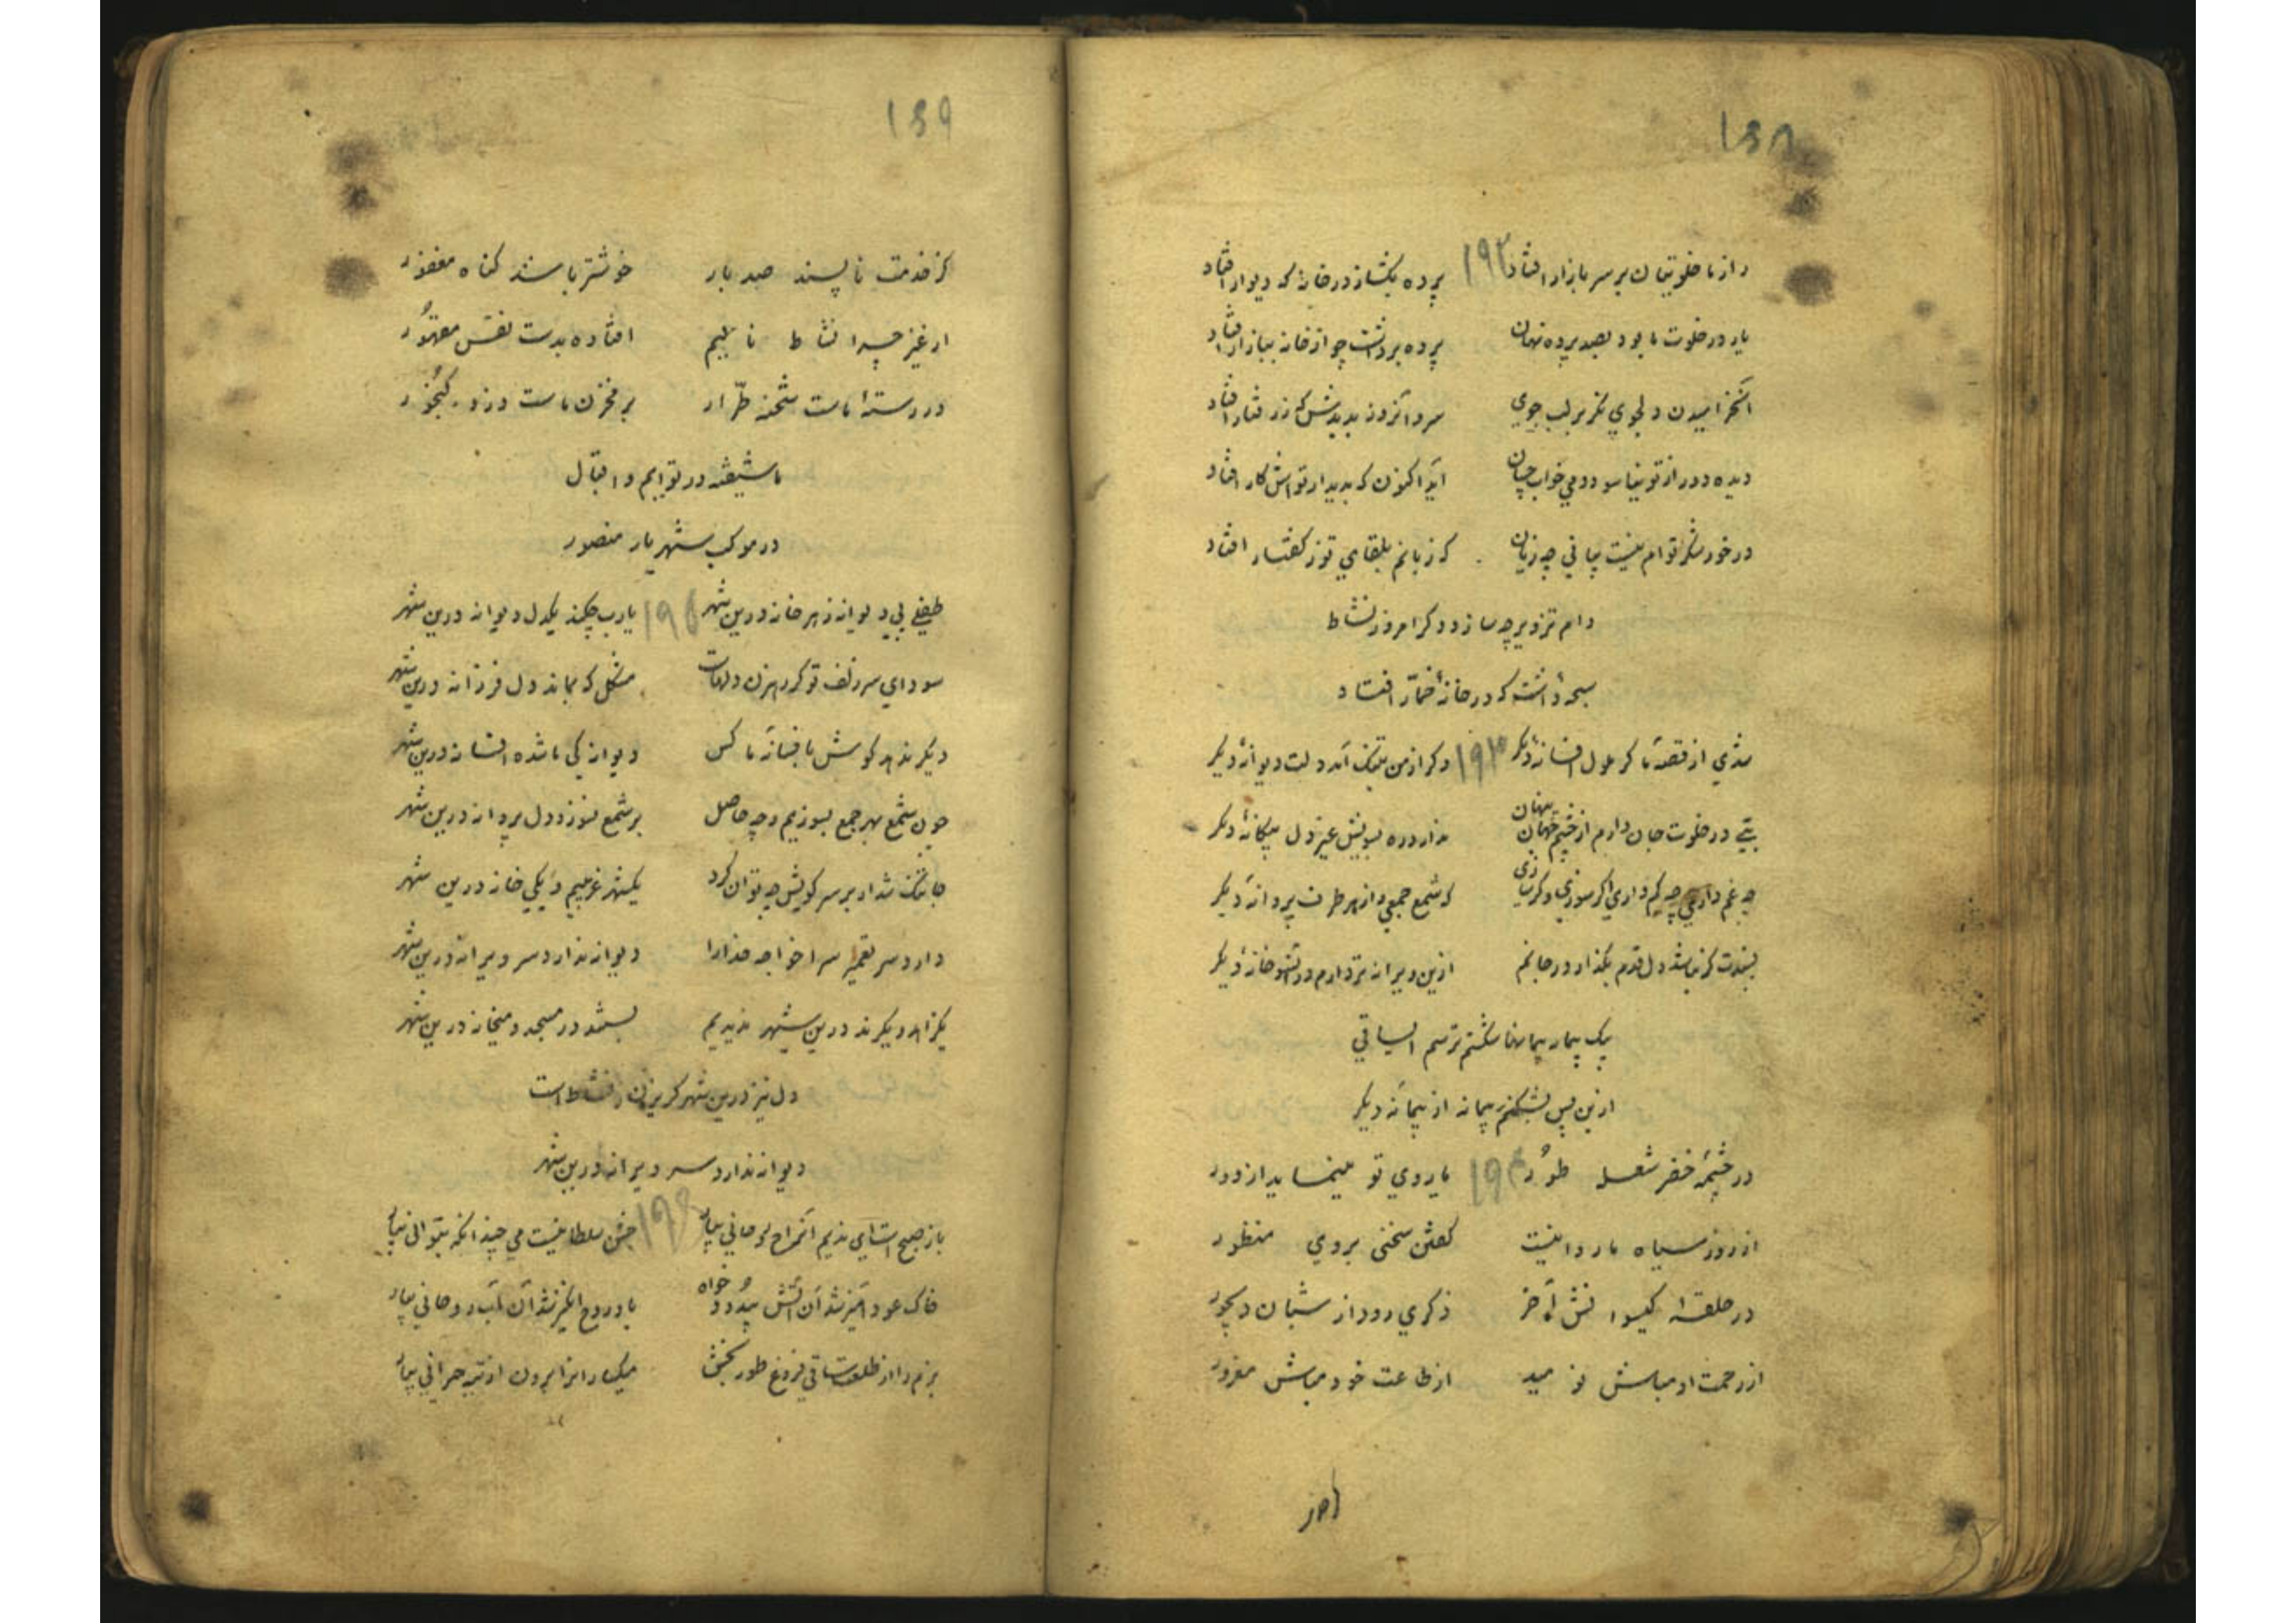 ١٥٨
راز ما خلوتیان بر سر بازار افتاد ١٩٢ پرده بگشا ز در خانه که دیوار افتاد
یار در خلوت ما بود بصد پرده نهان پرده برداشت چو از خانه ببازار افتاد
دلجوی نگر بر لب جوی سرو
دیده دور از تو نیاسود دمی خواب چسان آید اکنون که بدیدار تواش کار افتاد
در خور شکر توام نیست بیانی چه زیان که زبانم بلقای تو ز گفتار افتاد
دام تزویر چه سازد دگر امروز نشاط
سبحه داشت که در خانهٔ خمّار افتاد
شدی از قصهٔ ما گر ملول افسانهٔ دیگر ١٩٣ وگر از من بتنگ آمد دلت دیوانهٔ دیگر
بتی در خلوت جان دارم از چشم جهان پنهان ندارد ره بسویش غیر دل بیگانهٔ دیگر
چه غم داری چه کم داری اگر سوزی وگر سازی که شمع جمعی و از هر طرف پروانهٔ دیگر
پسندت گر نباشد دل قدم بگذار در جانم ازین ویرانه تر دارم درین خانهٔ دیگر
یک پیمانه پیمانها شکستم ترسم ای ساقی
ازین پس نشکنم پیمانه از پیمانهٔ دیگر
در چشمهٔ خضر شعلهٔ طور ١٩٤ یا روی تو مینماید از دور
از روز سیاه ما روا نیست گفتن سخنی بروی منظور
در حلقهٔ گیسوانش آخر ذکری رود از شبان دیجور
از رحمت او مباش نومید از طاعت خود مباش مغرور
١٥٩
کز خدمت ناپسند صد بار خوشتر باشد گناه مغفور
از غیر چرا نشاط نالیم افتاده بدست نفس مقهور
در رستهٔ ماست شحنه طرّار بر مخزن ماست دزد گنجور
ما شیفته در توایم و اقبال
در موکب شهریار منصور
طفلی پی دیوانه ز هر خانه درین شهر ١٩٥ یارب چکند یکدل دیوانه درین شهر
سودای سر زلف تو گر رهزن دلهاست مشکل که بماند دل فرزانه درین شهر
دیگر ندهد گوش بافسانهٔ ما کس دیوانگی ما شده افسانه درین شهر
چون شمع بهر جمع بسوزیم و چه حاصل بر شمع نسوزد دل پروانه درین شهر
جا تنگ شد ار بر سر کویش چه توان کرد یکشهر غریبیم و یکی خانه درین شهر
دارد سر تعمیر سرا خواجه خدارا دیوانه ندارد سر ویرانه درین شهر
یکزاهد و یکرند درین شهر ندیدیم بستند در مسجد و میخانه درین شهر
دل نیز درین شهر گریزان ز نشاط است
دیوانه ندارد سر ویرانه درین شهر
باز صبح است ای ندیم آن راح روحانی بیار ١٩٦ جشن سلطانیست می چندانکه بتوانی بیار
خاک عود آمیز شد آن آتش بیدود خواه باد روح انگیز شد آن آب روحانی بیار
بزم را از طلعت ساقی فروغ طور بخش